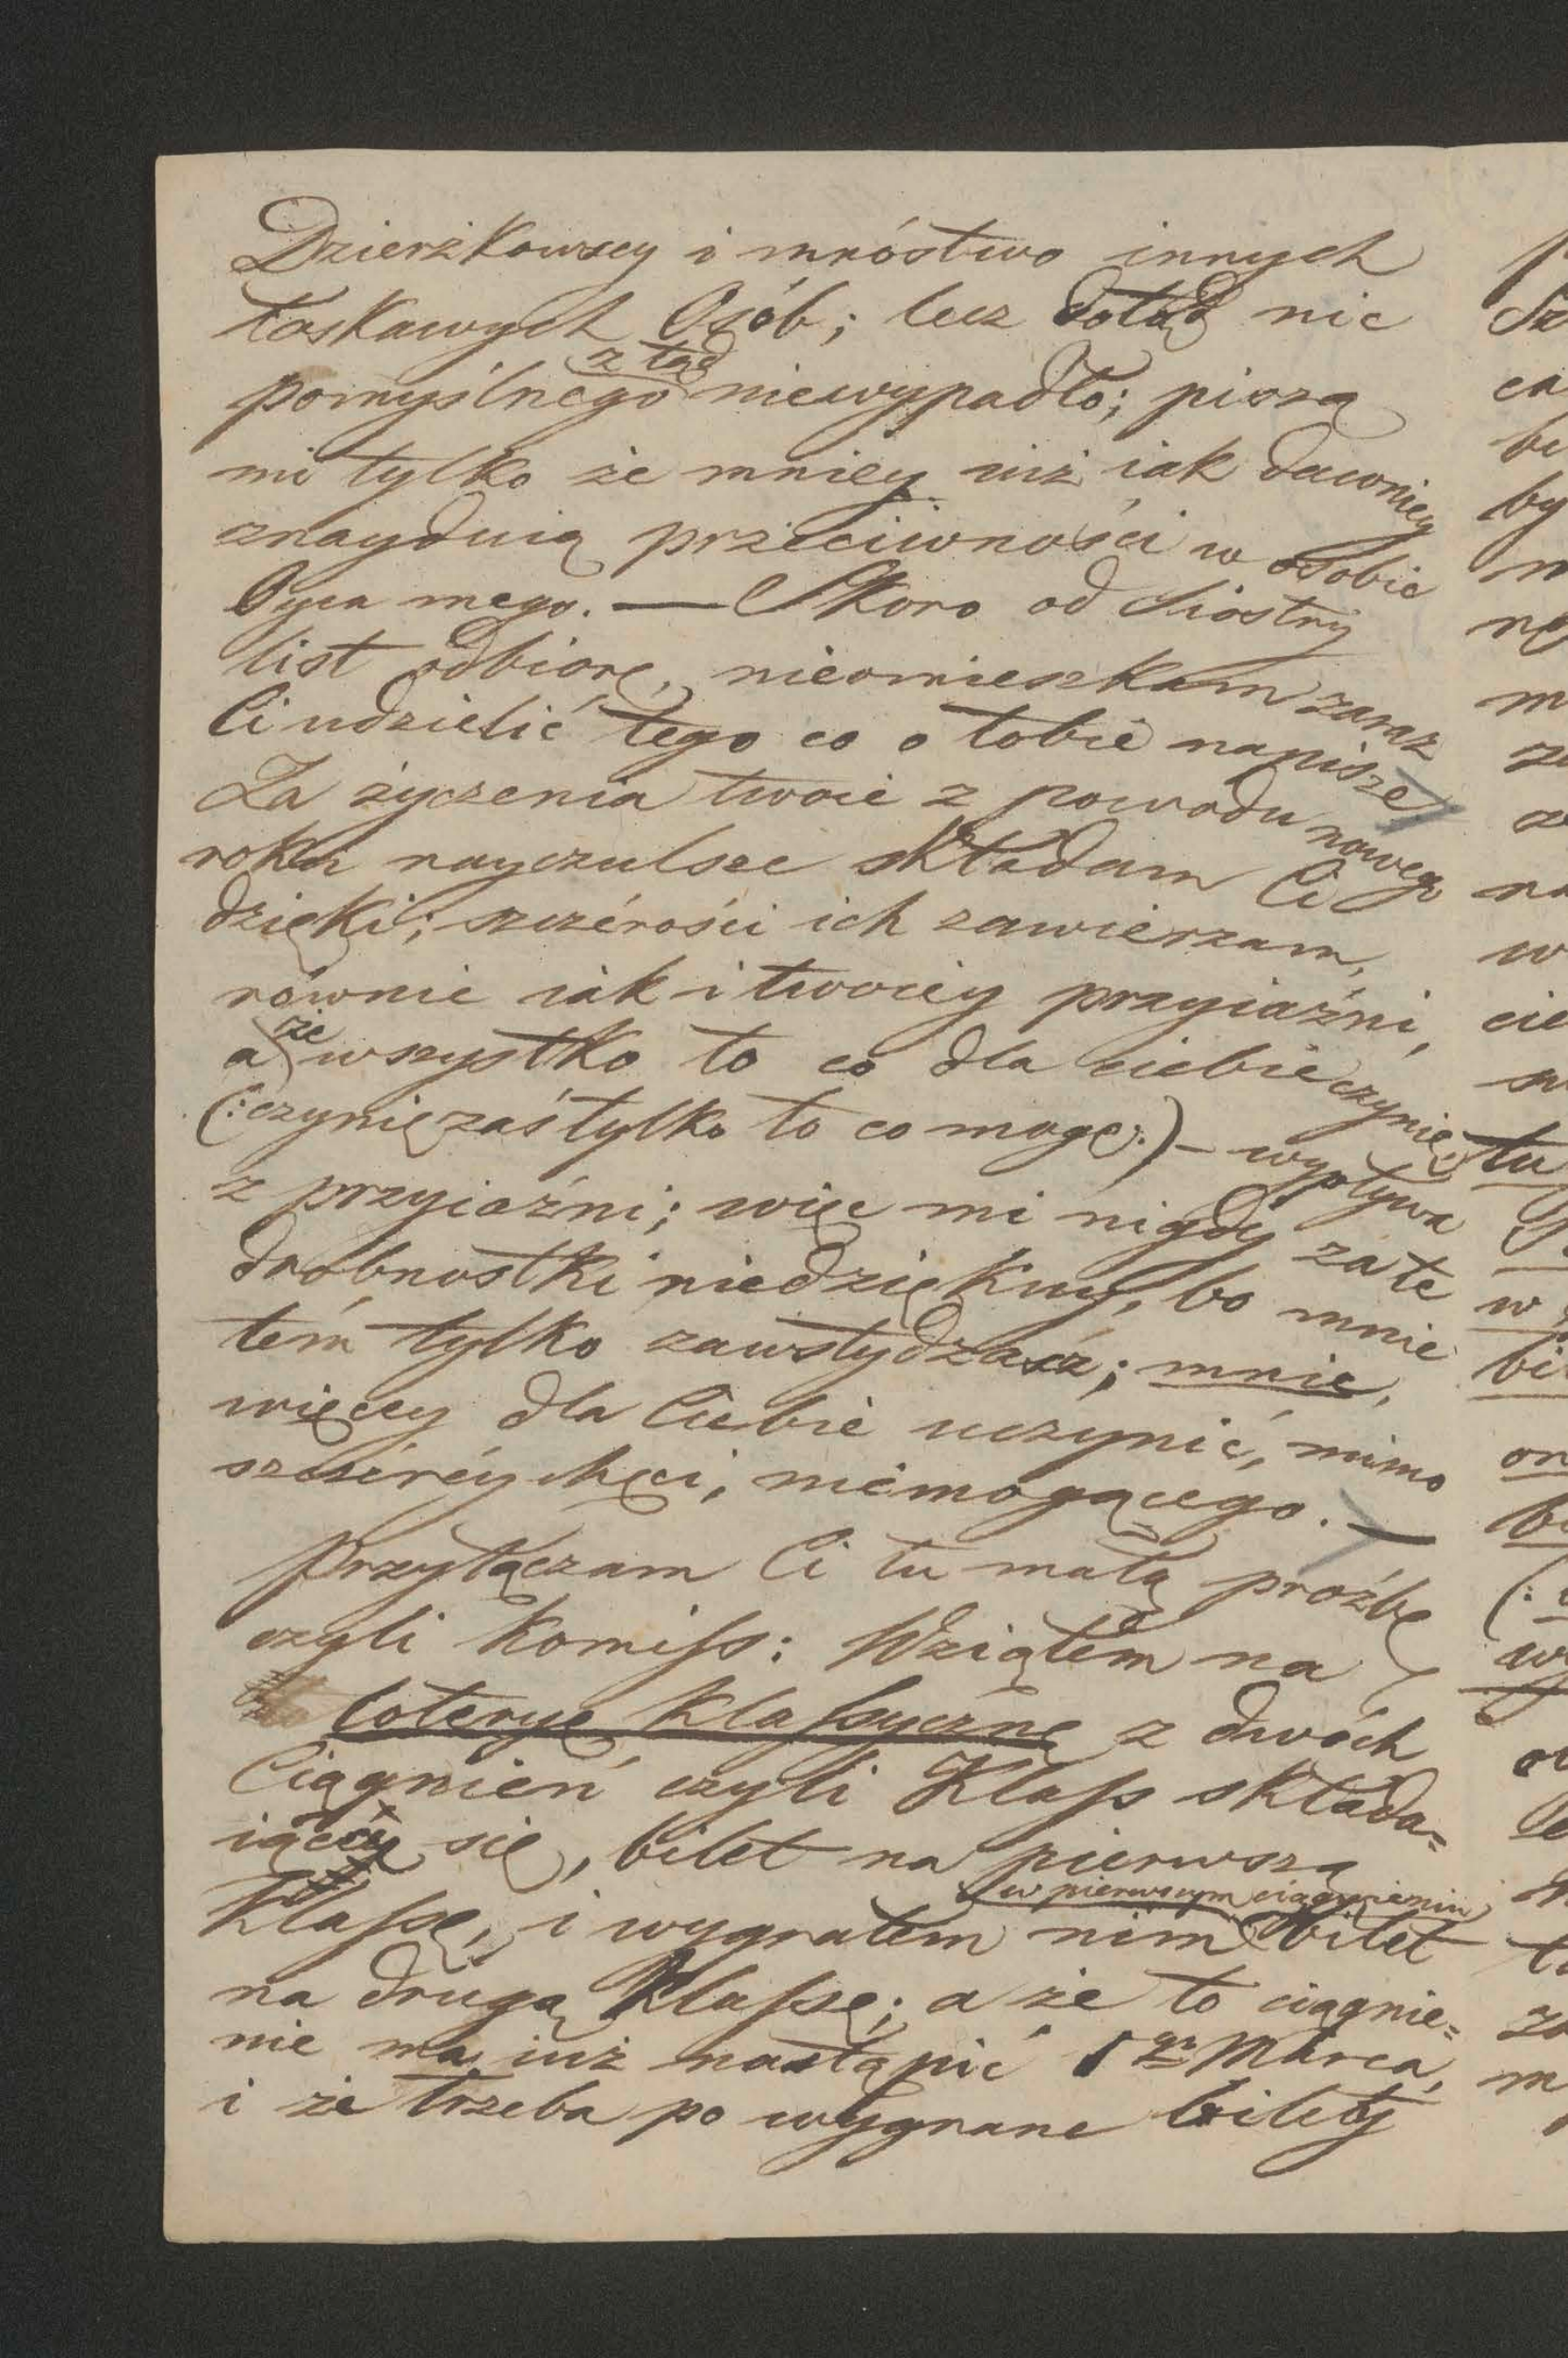 Dzierżkowscy i mnóstwo innych
łaskawych Osób; lecz dotąd nic
z tąd
pomyślnego niewypadło; piszą
mi tylko że mniey iuż iak dawniey
znayduią przeciwności w osobie
Oyca mego. — Skoro od Siostry
list odbiorę, nieomieszkam zaraz
Ci udzielić tego co o tobie napisze
Za życzenia twoie z powodu nowego
roku nayczulsze składam Ci
dzięki; szczérości ich zawierzam,
równie iak i twoiey przyiaźni,
że
a wszystko to co dla ciebie czynię
(:czynię zaś tylko to co mogę:) – wypływa
z przyiaźni; więc mi nigdy za te
drobnostki niedziękuy, bo mnie
tém tylko zawstydzasz; mnie,
więcey dla Ciebie uczynić, mimo
szczéréy chęci, niemogącego. —
Przyłączam Ci tu małą proźbę
czyli komiſs: Wziąłem na
loteryę klaſsyczną z dwóch
Ciągnień czyli Klaſs składa=
iącéy się, bilet na pierwszą
w pierwszym ciągnieniu
Klaſsę, i wygrałem nim bilet
na drugą Klaſsę; a że to ciągnie=
nie ma iuż nastąpić 1go Marca,
i że trzeba po wygrane bilety